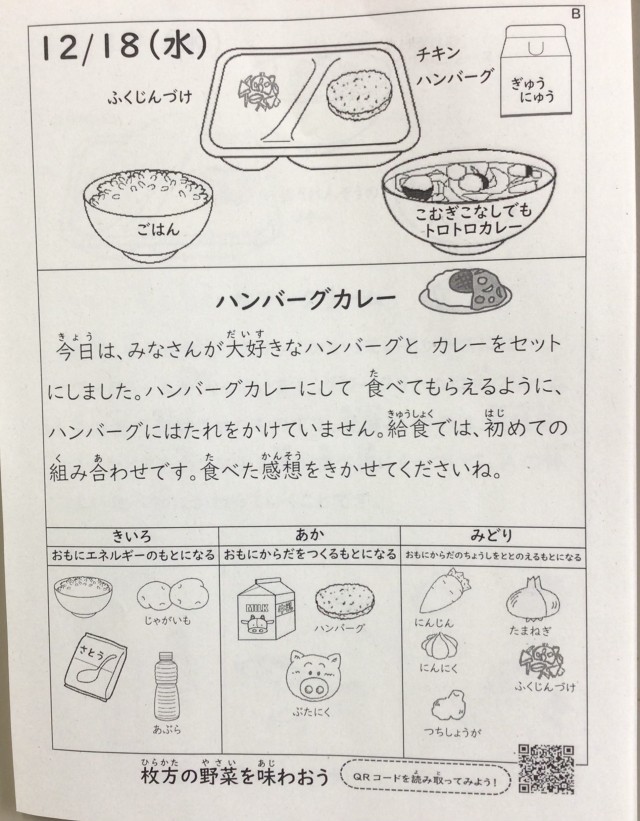 B
12/18(水)
ふくじんづけ
チキン
ハンバーグ
ぎゅう
にゅう
ごはん
こむぎこなしでも
トロトロカレー
ハンバーグカレー
今日は、みなさんが大好きなハンバーグと カレーをセット
にしました。ハンバーグカレーにして 食べてもらえるように、
ハンバーグにはたれをかけていません。給食では、初めての
組み合わせです。食べた感想をきかせてくださいね。
きいろ
あか
みどり
おもにエネルギーのもとになる
おもにからだをつくるもとになる
おもにからだのちょうしをととのえるもとになる
じゃがいも
さとう
あぶら
MILK
ハンバーグ
ぶたにく
にんじん
たまねぎ
にんにく
ふくじんづけ
つちしょうが
枚方の野菜を味わおう
QRコードを読み取ってみよう!